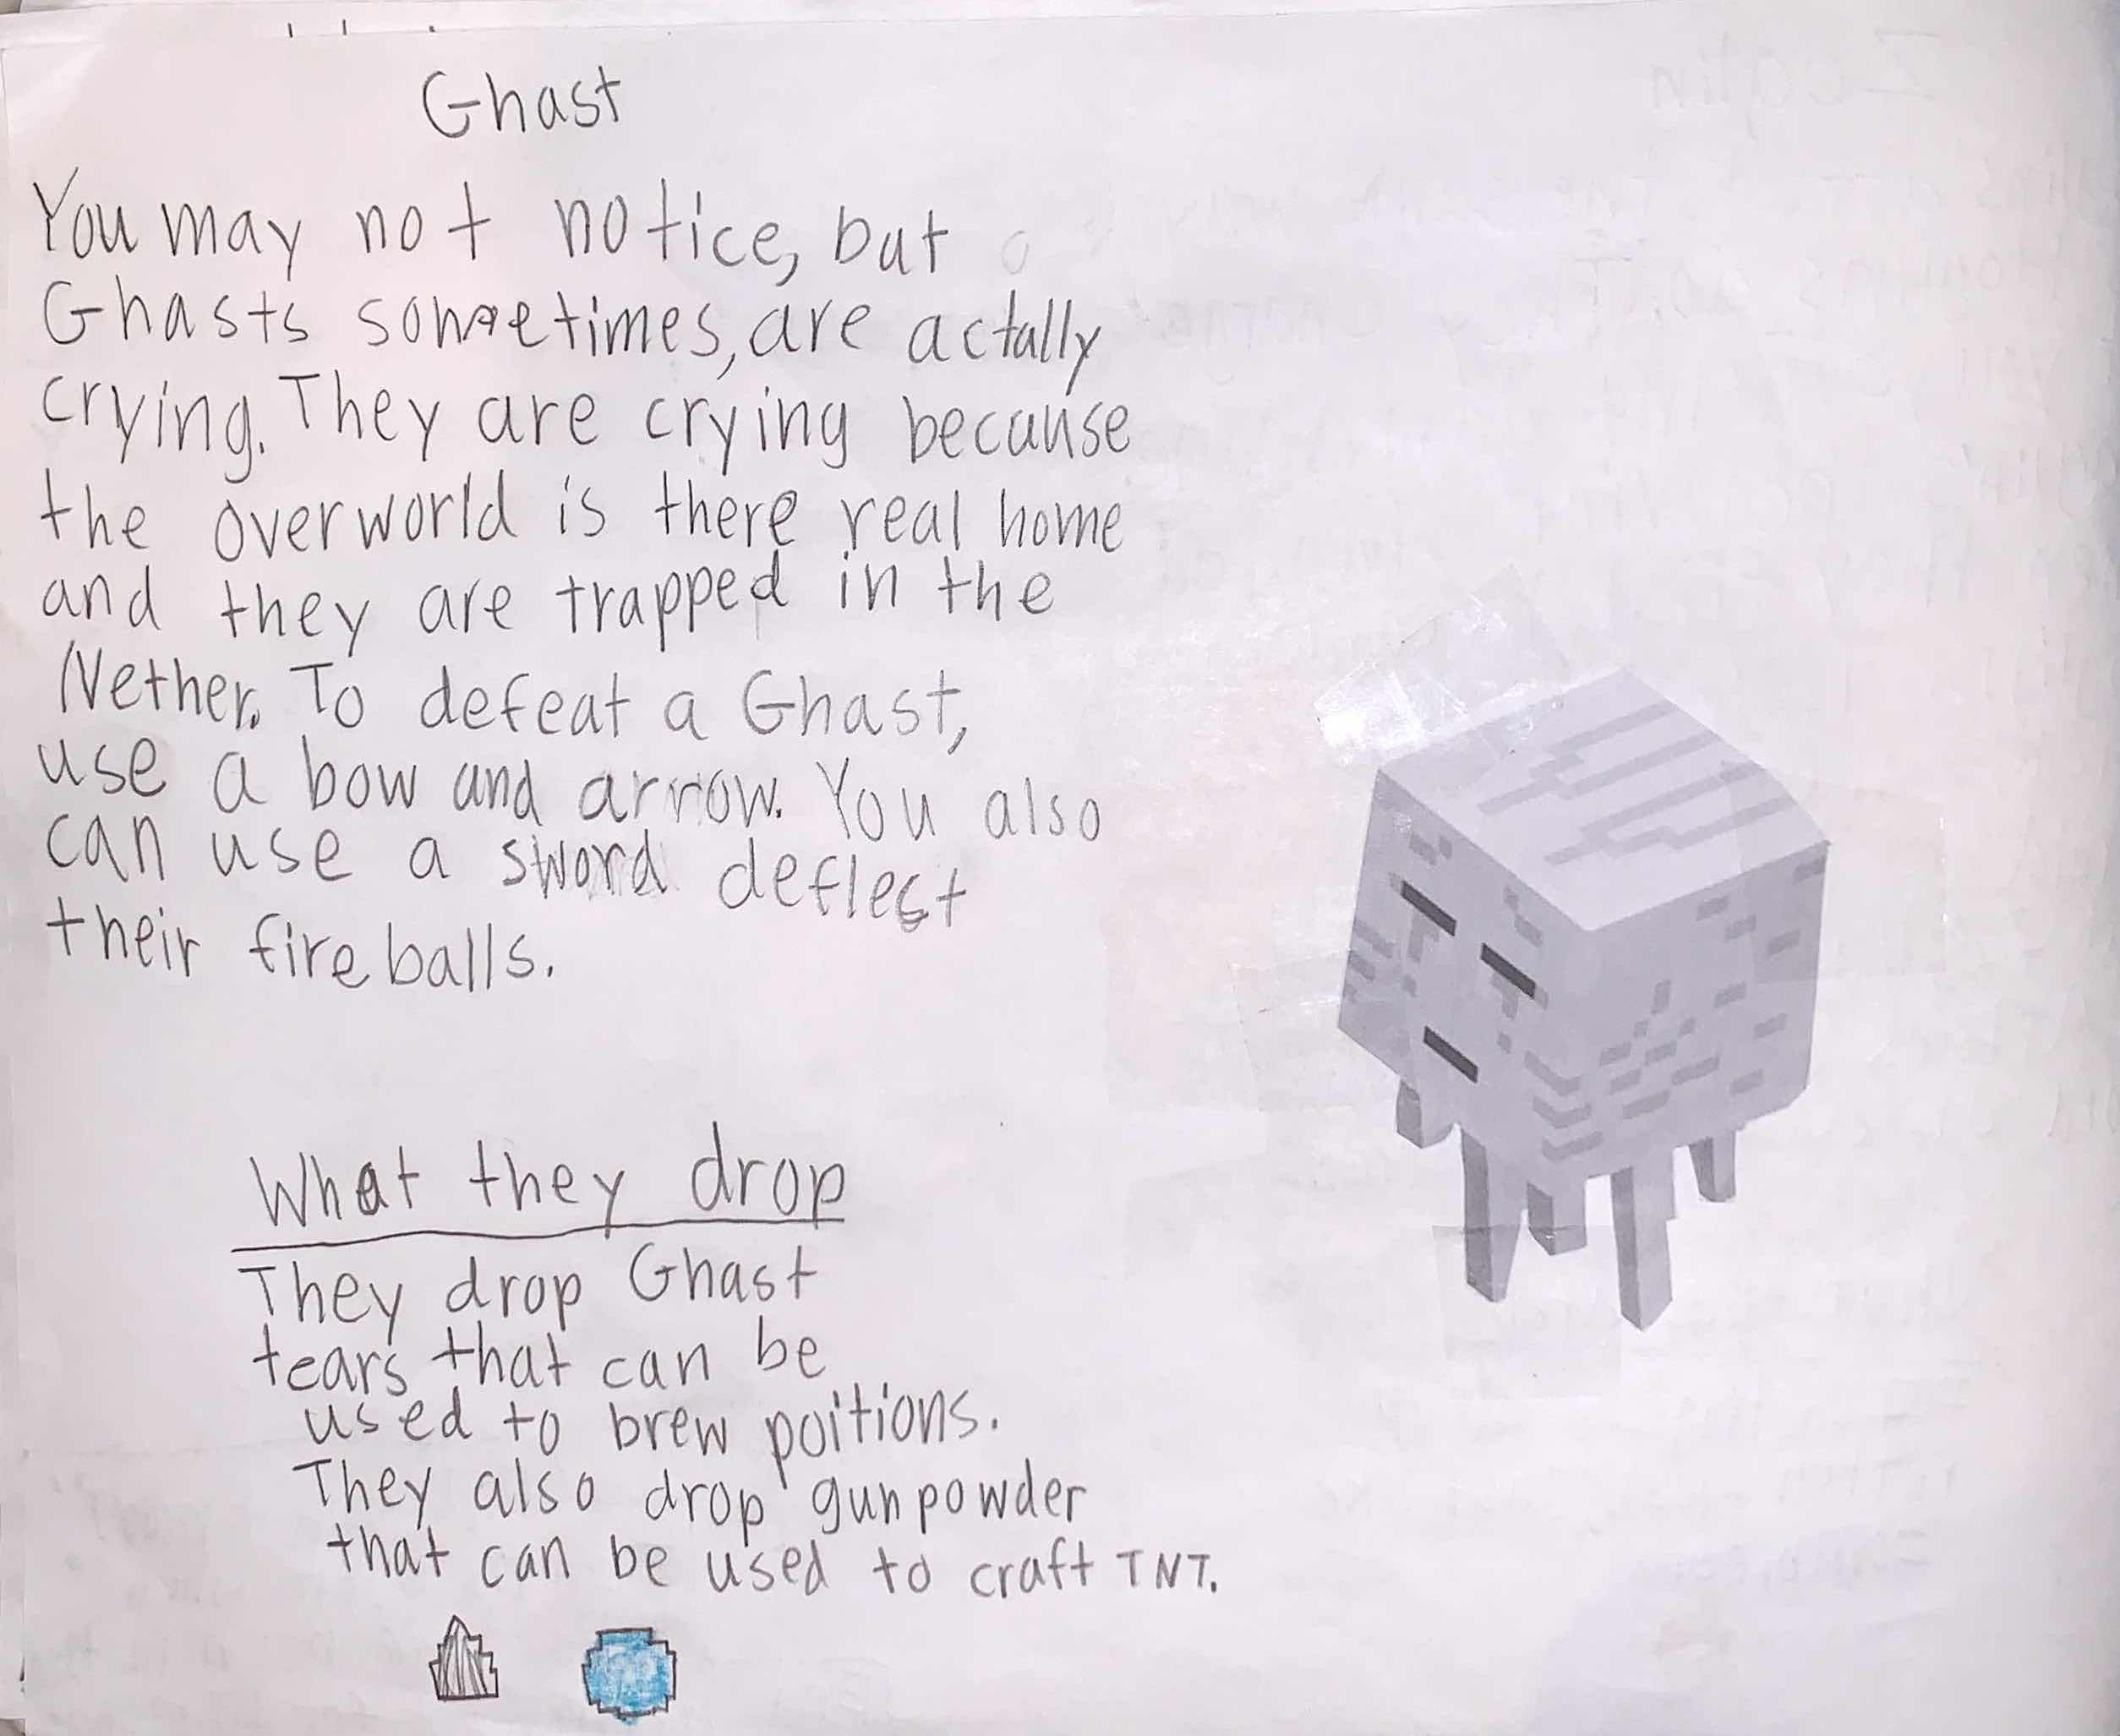 Ghast
You may not notice, but
Ghasts sometimes, are actally
crying. They are crying because
the overworld is there real home
and they are trapped in the
Nether. To defeat a Ghast,
use a bow and arrow. You also
can use a sword deflect
their fireballs.
What they drop
They drop Ghast
tears that can be
used to brew poitions.
They also drop gunpowder
that can be used to craft TNT.